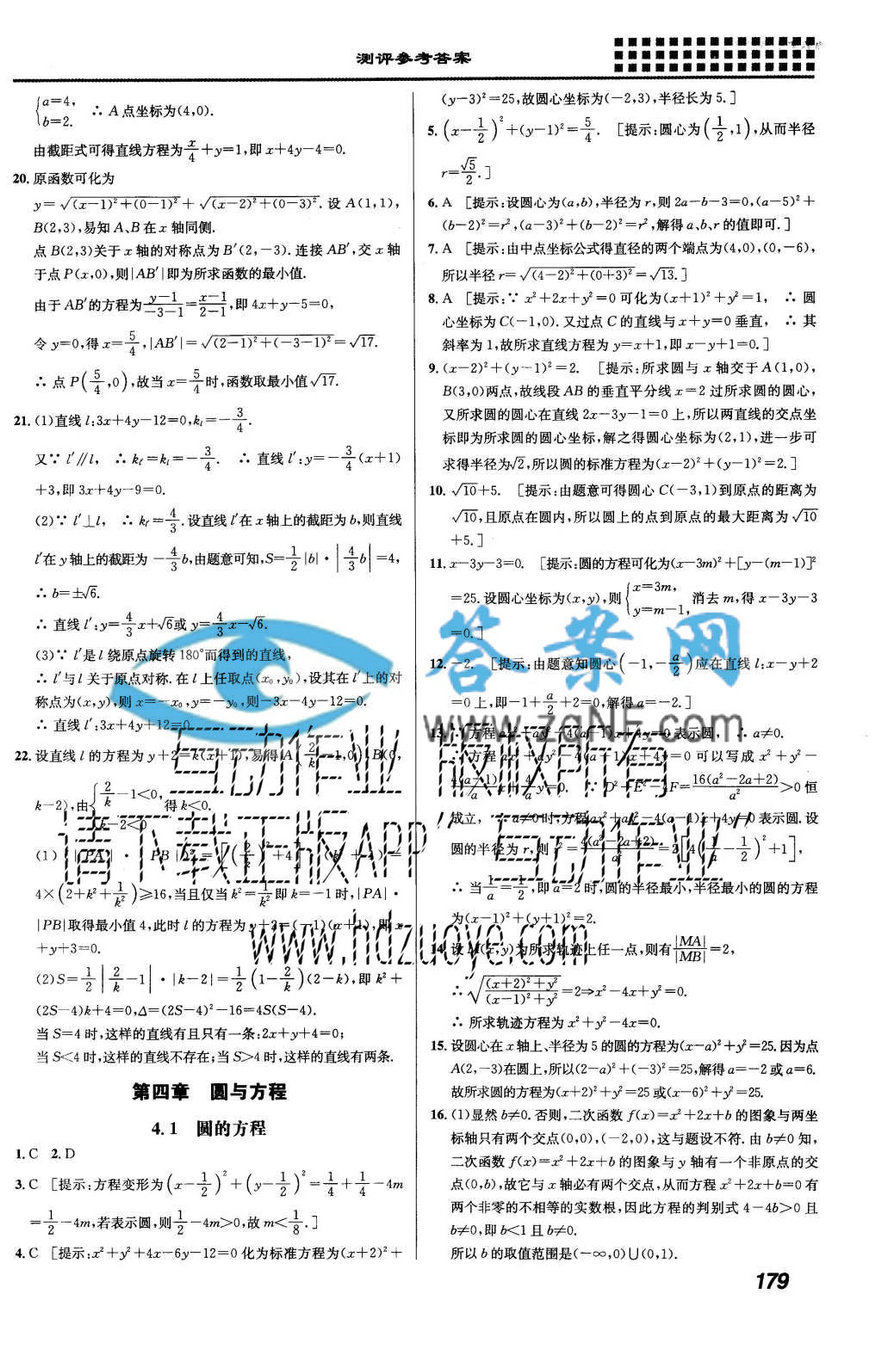 测评参考答案
{a=4, b=2. ∴A点坐标为(4,0).
由截距式可得直线方程为x/4+y=1,即x+4y-4=0.
20.原函数可化为
y=√((x-1)²+(0-1)²)+√((x-2)²+(0-3)²).设A(1,1),
B(2,3),易知A、B在x轴同侧.
点B(2,3)关于x轴的对称点为B′(2,-3).连接AB′,交x轴
于点P(x,0),则|AB′|即为所求函数的最小值.
由于AB′的方程为(y-1)/(-3-1)=(x-1)/(2-1),即4x+y-5=0,
令y=0,得x=5/4,|AB′|=√((2-1)²+(-3-1)²)=√17.
∴点P(5/4,0),故当x=5/4时,函数取最小值√17.
21.(1)直线l:3x+4y-12=0,kₗ=-3/4.
又∵l′∥l, ∴kₗ′=kₗ=-3/4. ∴直线l′:y=-3/4(x+1)
+3,即3x+4y-9=0.
(2)∵l′⊥l, ∴kₗ′=4/3.设直线l′在x轴上的截距为b,则直线
l′在y轴上的截距为-4/3b,由题意可知,S=1/2|b|·|4/3b|=4,
∴b=±√6.
∴直线l′:y=4/3x+√6或y=4/3x-√6.
(3)∵l′是l绕原点旋转180°而得到的直线,
∴l′与l关于原点对称.在l上任取点(x₀,y₀),设其在l′上的对
称点为(x,y),则x=-x₀,y=-y₀,则-3x-4y-12=0.
∴直线l′:3x+4y+12=0.
22.设直线l的方程为y+2=k(x+1),易得A(2/k-1,0),B(0,
k-2),由{2/k-1<0, k-2<0 得k<0.
(1)
4×(2+k²+1/k²)≥16,当且仅当k²=1/k²即k=-1时,|PA|·
|PB|取得最小值4,此时l的方程为y+2=(-1)(x+1),即x
+y+3=0.
(2)S=1/2|2/k-1|·|k-2|=1/2(1-2/k)(2-k),即k²+
(2S-4)k+4=0,Δ=(2S-4)²-16=4S(S-4).
当S=4时,这样的直线有且只有一条:2x+y+4=0;
当S<4时,这样的直线不存在;当S>4时,这样的直线有两条.
第四章 圆与方程
4.1 圆的方程
1.C 2.D
3.C [提示:方程变形为(x-1/2)²+(y-1/2)²=1/4+1/4-4m
=1/2-4m,若表示圆,则1/2-4m>0,故m<1/8.]
4.C [提示:x²+y²+4x-6y-12=0化为标准方程为(x+2)²+
(y-3)²=25,故圆心坐标为(-2,3),半径长为5.]
5.(x-1/2)²+(y-1)²=5/4. [提示:圆心为(1/2,1),从而半径
r=√5/2.]
6.A [提示:设圆心为(a,b),半径为r,则2a-b-3=0,(a-5)²+
(b-2)²=r²,(a-3)²+(b-2)²=r²,解得a、b、r的值即可.]
7.A [提示:由中点坐标公式得直径的两个端点为(4,0),(0,-6),
所以半径r=√((4-2)²+(0+3)²)=√13.]
8.A [提示:∵x²+2x+y²=0可化为(x+1)²+y²=1, ∴圆
心坐标为C(-1,0).又过点C的直线与x+y=0垂直, ∴其
斜率为1,故所求直线方程为y=x+1,即x-y+1=0.]
9.(x-2)²+(y-1)²=2. [提示:所求圆与x轴交于A(1,0),
B(3,0)两点,故线段AB的垂直平分线x=2过所求圆的圆心,
又所求圆的圆心在直线2x-3y-1=0上,所以两直线的交点坐
标即为所求圆的圆心坐标,解之得圆心坐标为(2,1),进一步可
求得半径为√2,所以圆的标准方程为(x-2)²+(y-1)²=2.]
10.√10+5. [提示:由题意可得圆心C(-3,1)到原点的距离为
√10,且原点在圆内,所以圆上的点到原点的最大距离为√10
+5.]
11.x-3y-3=0. [提示:圆的方程可化为(x-3m)²+[y-(m-1)]²
=25.设圆心坐标为(x,y),则{x=3m, y=m-1, 消去m,得x-3y-3
=0.]
12.-2. [提示:由题意知圆心(-1,-a/2)应在直线l:x-y+2
=0上,即-1+a/2+2=0,解得a=-2.]
13. ∴a≠0.
可以写成x²+y²-
=16(a²-2a+2)/a²>0恒
成立, ∴a≠0时,方程ax²+ay²-4(a-1)x+4y=0表示圆.设
圆的半径为r,则
∴当1/a=1/2,即a=2时,圆的半径最小,半径最小的圆的方程
为(x-1)²+(y+1)²=2.
14.设M(x,y)为所求轨迹上任一点,则有|MA|/|MB|=2,
∴√(((x+2)²+y²)/((x-1)²+y²))=2⇒x²-4x+y²=0.
∴所求轨迹方程为x²+y²-4x=0.
15.设圆心在x轴上、半径为5的圆的方程为(x-a)²+y²=25.因为点
A(2,-3)在圆上,所以(2-a)²+(-3)²=25,解得a=-2或a=6.
故所求圆的方程为(x+2)²+y²=25或(x-6)²+y²=25.
16.(1)显然b≠0.否则,二次函数f(x)=x²+2x+b的图象与两坐
标轴只有两个交点(0,0),(-2,0),这与题设不符.由b≠0知,
二次函数f(x)=x²+2x+b的图象与y轴有一个非原点的交
点(0,b),故它与x轴必有两个交点,从而方程x²+2x+b=0有
两个非零的不相等的实数根,因此方程的判别式4-4b>0且
b≠0,即b<1且b≠0.
所以b的取值范围是(-∞,0)∪(0,1).
179
答案网
www.zqNF.com
互动作业 版权所有
请下载正版APP“互动作业”
www.hdzuoye.com